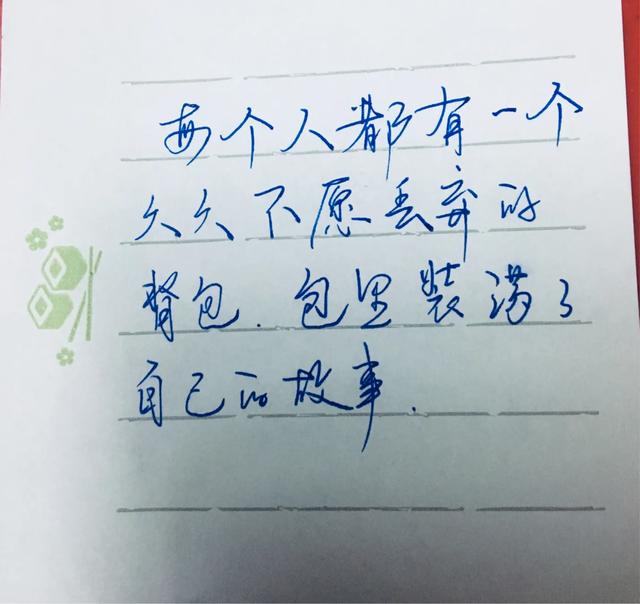 每个人都有一个
久久不愿丢弃的
背包.包里装满了
自己的故事.